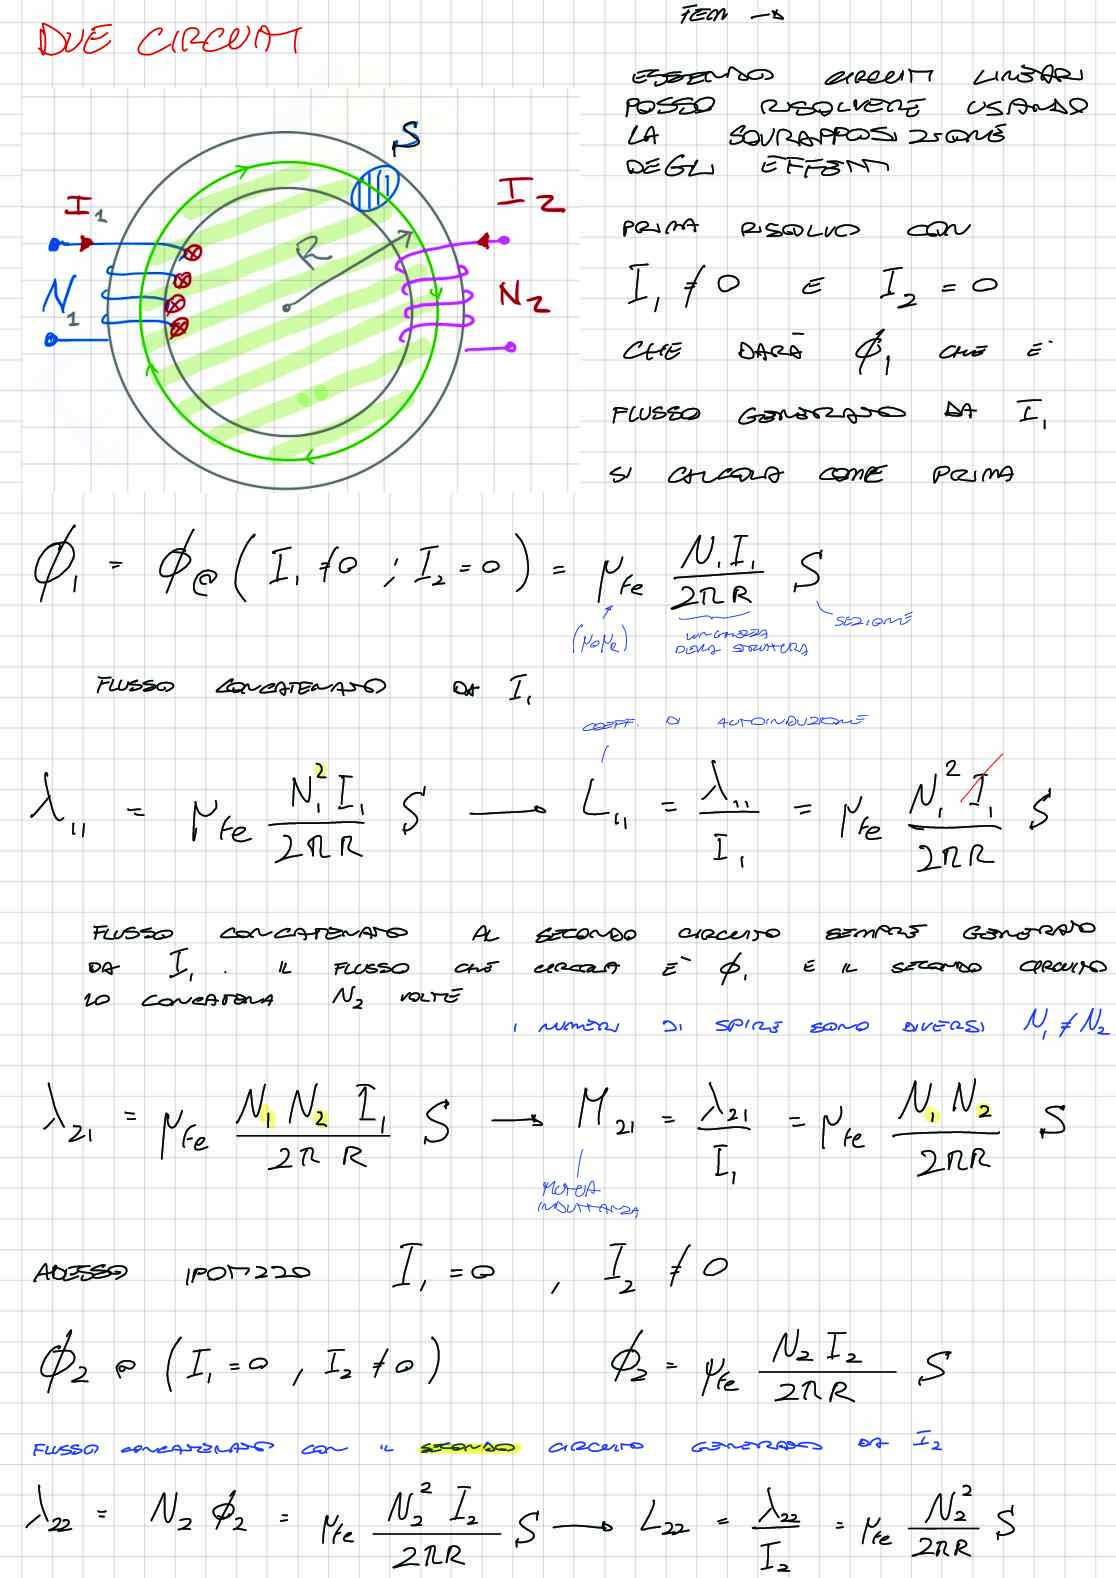 DUE CIRCUITI
FEM →
ESSENDO CIRCUITI LINEARI
POSSO RISOLVERE USANDO
LA SOVRAPPOSIZIONE
DEGLI EFFETTI
S
I1
I2
R
N1
N2
PRIMA RISOLVO CON
I1 ≠ 0 E I2 = 0
CHE DARÀ ϕ1 CHE È
FLUSSO GENERATO DA I1
SI CALCOLA COME PRIMA
ϕ1 = ϕ@(I1 ≠ 0 ; I2 = 0) = μFe N1 I1 / 2πR S
(μ0μr)
LUNGHEZZA
DELLA STRUTTURA
SEZIONE
FLUSSO CONCATENATO DA I1
COEFF. DI AUTOINDUZIONE
λ11 = μFe N1² I1 / 2πR S → L11 = λ11 / I1 = μFe N1² I1 / 2πR S
FLUSSO CONCATENATO AL SECONDO CIRCUITO SEMPRE GENERATO
DA I1. IL FLUSSO CHE CIRCOLA È ϕ1 E IL SECONDO CIRCUITO
LO CONCATENA N2 VOLTE
I NUMERI DI SPIRE SONO DIVERSI N1 ≠ N2
λ21 = μFe N1 N2 I1 / 2πR S → M21 = λ21 / I1 = μFe N1 N2 / 2πR S
MUTUA
INDUTTANZA
ADESSO IPOTIZZO I1 = 0 , I2 ≠ 0
ϕ2 @ (I1 = 0 , I2 ≠ 0) ϕ2 = μFe N2 I2 / 2πR S
FLUSSO CONCATENATO CON IL SECONDO CIRCUITO GENERATO DA I2
λ22 = N2 ϕ2 = μFe N2² I2 / 2πR S → L22 = λ22 / I2 = μFe N2² / 2πR S